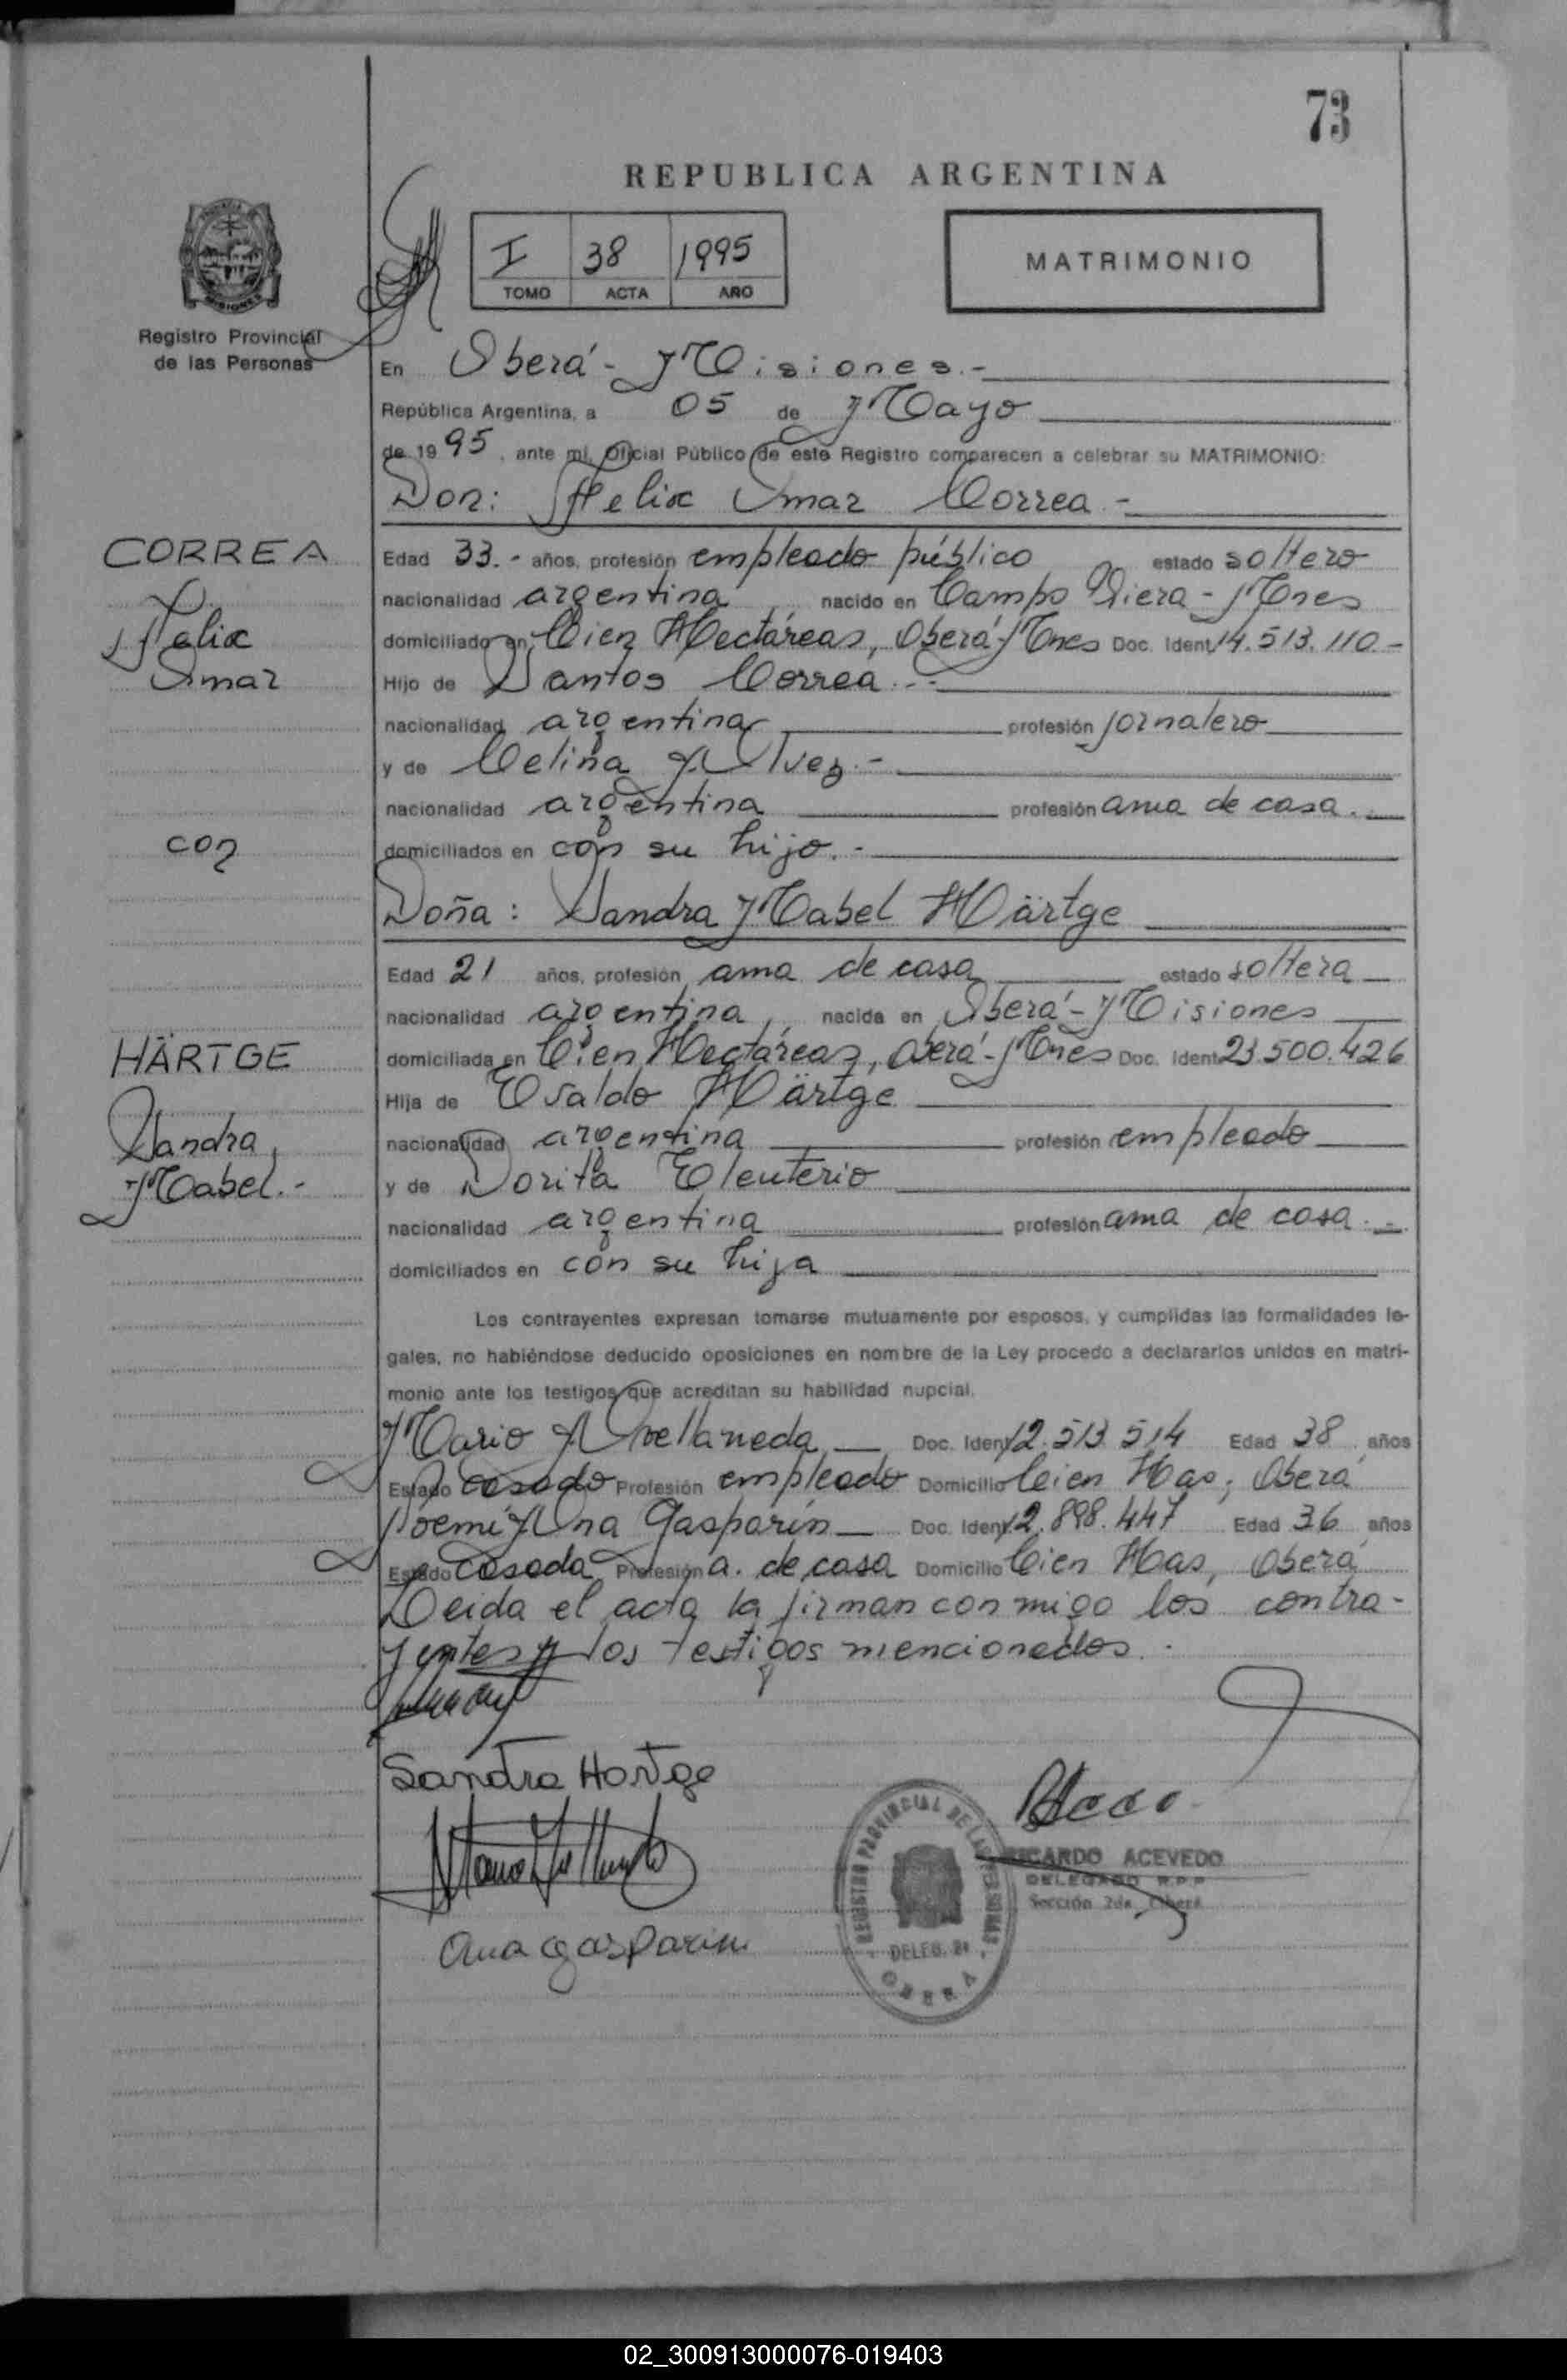 73
REPUBLICA ARGENTINA
I 38 1995
TOMO ACTA AÑO
MATRIMONIO
Registro Provincial
de las Personas
En Oberá - Misiones.-
República Argentina, a 05 de Mayo
de 1995, ante mí, Oficial Público de este Registro comparecen a celebrar su MATRIMONIO:
Don: Felix Omar Correa -
CORREA
Felix
Omar
con
HÄRTGE
Sandra
Mabel.-
Edad 33.- años, profesión empleado público estado soltero
nacionalidad argentina, nacido en Campo Viera - Mnes
domiciliado en Cien Hectáreas, Oberá-Mnes Doc. Ident. 14.513.110.-
Hijo de Santos Correa.-
nacionalidad argentina profesión jornalero
y de Celina Alvez.-
nacionalidad argentina profesión ama de casa.-
domiciliados en con su hijo.-
Doña: Sandra Mabel Härtge
Edad 21 años, profesión ama de casa estado soltera
nacionalidad argentina, nacida en Oberá - Misiones
domiciliada en Cien Hectáreas, Oberá-Mnes Doc. Ident. 23.500.426
Hija de Osvaldo Härtge
nacionalidad argentina profesión empleado
y de Dorita Eleuterio
nacionalidad argentina profesión ama de casa.-
domiciliados en con su hija
Los contrayentes expresan tomarse mutuamente por esposos, y cumplidas las formalidades le-
gales, no habiéndose deducido oposiciones en nombre de la Ley procedo a declararlos unidos en matri-
monio ante los testigos que acreditan su habilidad nupcial.
Mario Avellaneda Doc. Ident. 12.513.514 Edad 38 años
Estado casado Profesión empleado Domicilio Cien Has, Oberá
Noemí Ana Gasparin Doc. Ident. 12.898.447 Edad 36 años
Estado casada Profesión a. de casa Domicilio Cien Has, Oberá
Leida el acta la firman conmigo los contra-
yentes y los testigos mencionados.-
Sandra Hartge
Ana Gasparin
REGISTRO PROVINCIAL DE LAS PERSONAS
DELEG. 2a
OBERA
RICARDO ACEVEDO
DELEGADO R.P.P
Sección 2da. Oberá
02_300913000076-019403